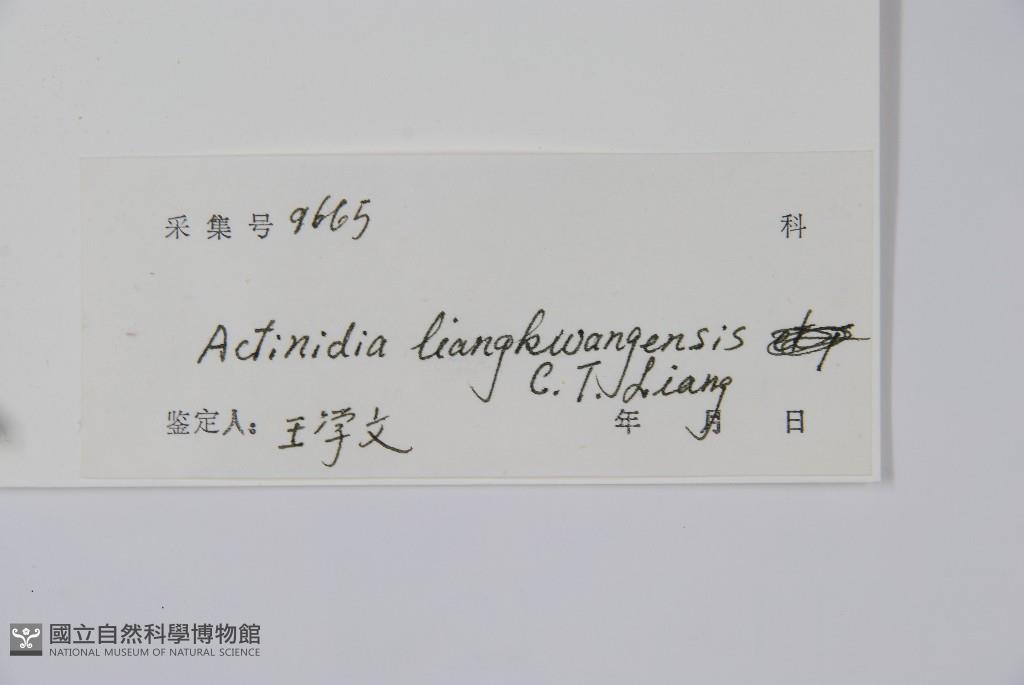 采集号 9665 科
Actinidia liangkwangensis
C. T. Liang
鉴定人: 王学文 年 月 日
國立自然科學博物館
NATIONAL MUSEUM OF NATURAL SCIENCE